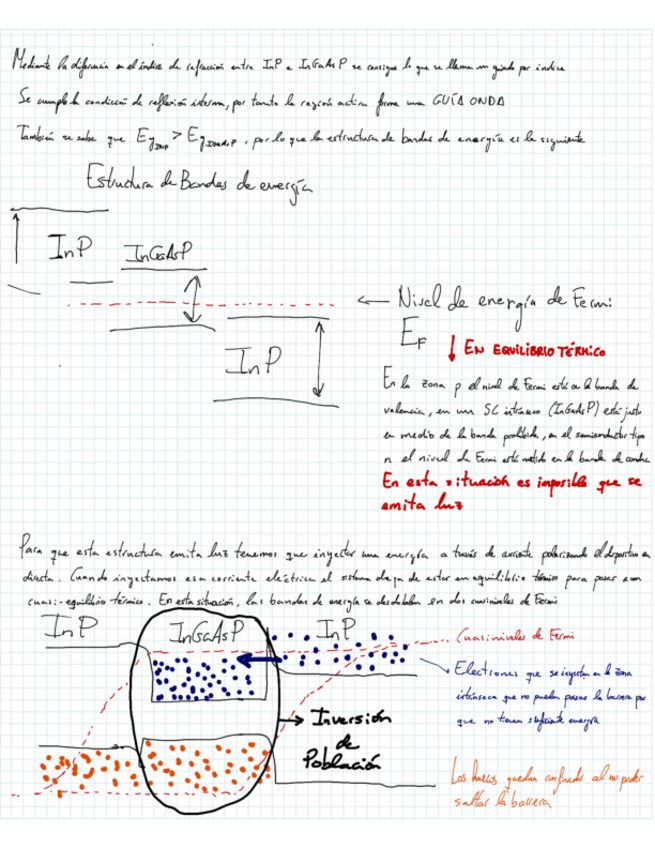 Mediante la diferencia en el índice de refracción entre InP e InGaAsP se consigue lo que se llama un guiado por indice
Se cumple la condición de reflexión interna, por tanto la región activa forma una GUÍA ONDA
También se sabe que Eg InP > Eg InGaAsP, por lo que la estructura de bandas de energía es la siguiente
Estructura de Bandas de energía
InP
InGaAsP
InP
Nivel de energía de Fermi
EF
EN EQUILIBRIO TÉRMICO
En la zona p el nivel de Fermi está en la banda de
valencia, en un SC intrínseco (InGaAsP) está justo
en medio de la banda prohibida, en el semiconductor tipo
n el nivel de Fermi está metido en la banda de conduc
En esta situación es imposible que se
emita luz
Para que esta estructura emita luz tenemos que inyectar una energía a través de corriente polarizando el dispositivo en
directa. Cuando inyectamos esa corriente eléctrica el sistema deja de estar en equilibrio térmico para pasar a un
cuasi-equilibrio térmico. En esta situación, las bandas de energía se desdoblan en dos cuasiniveles de Fermi
InP
InGaAsP
InP
Cuasiniveles de Fermi
Electrones que se inyectan en la zona
intrínseca que no pueden pasar la barrera por
que no tienen suficiente energía
Inversión
de
Población
Los huecos quedan confinados al no poder
saltar la barrera